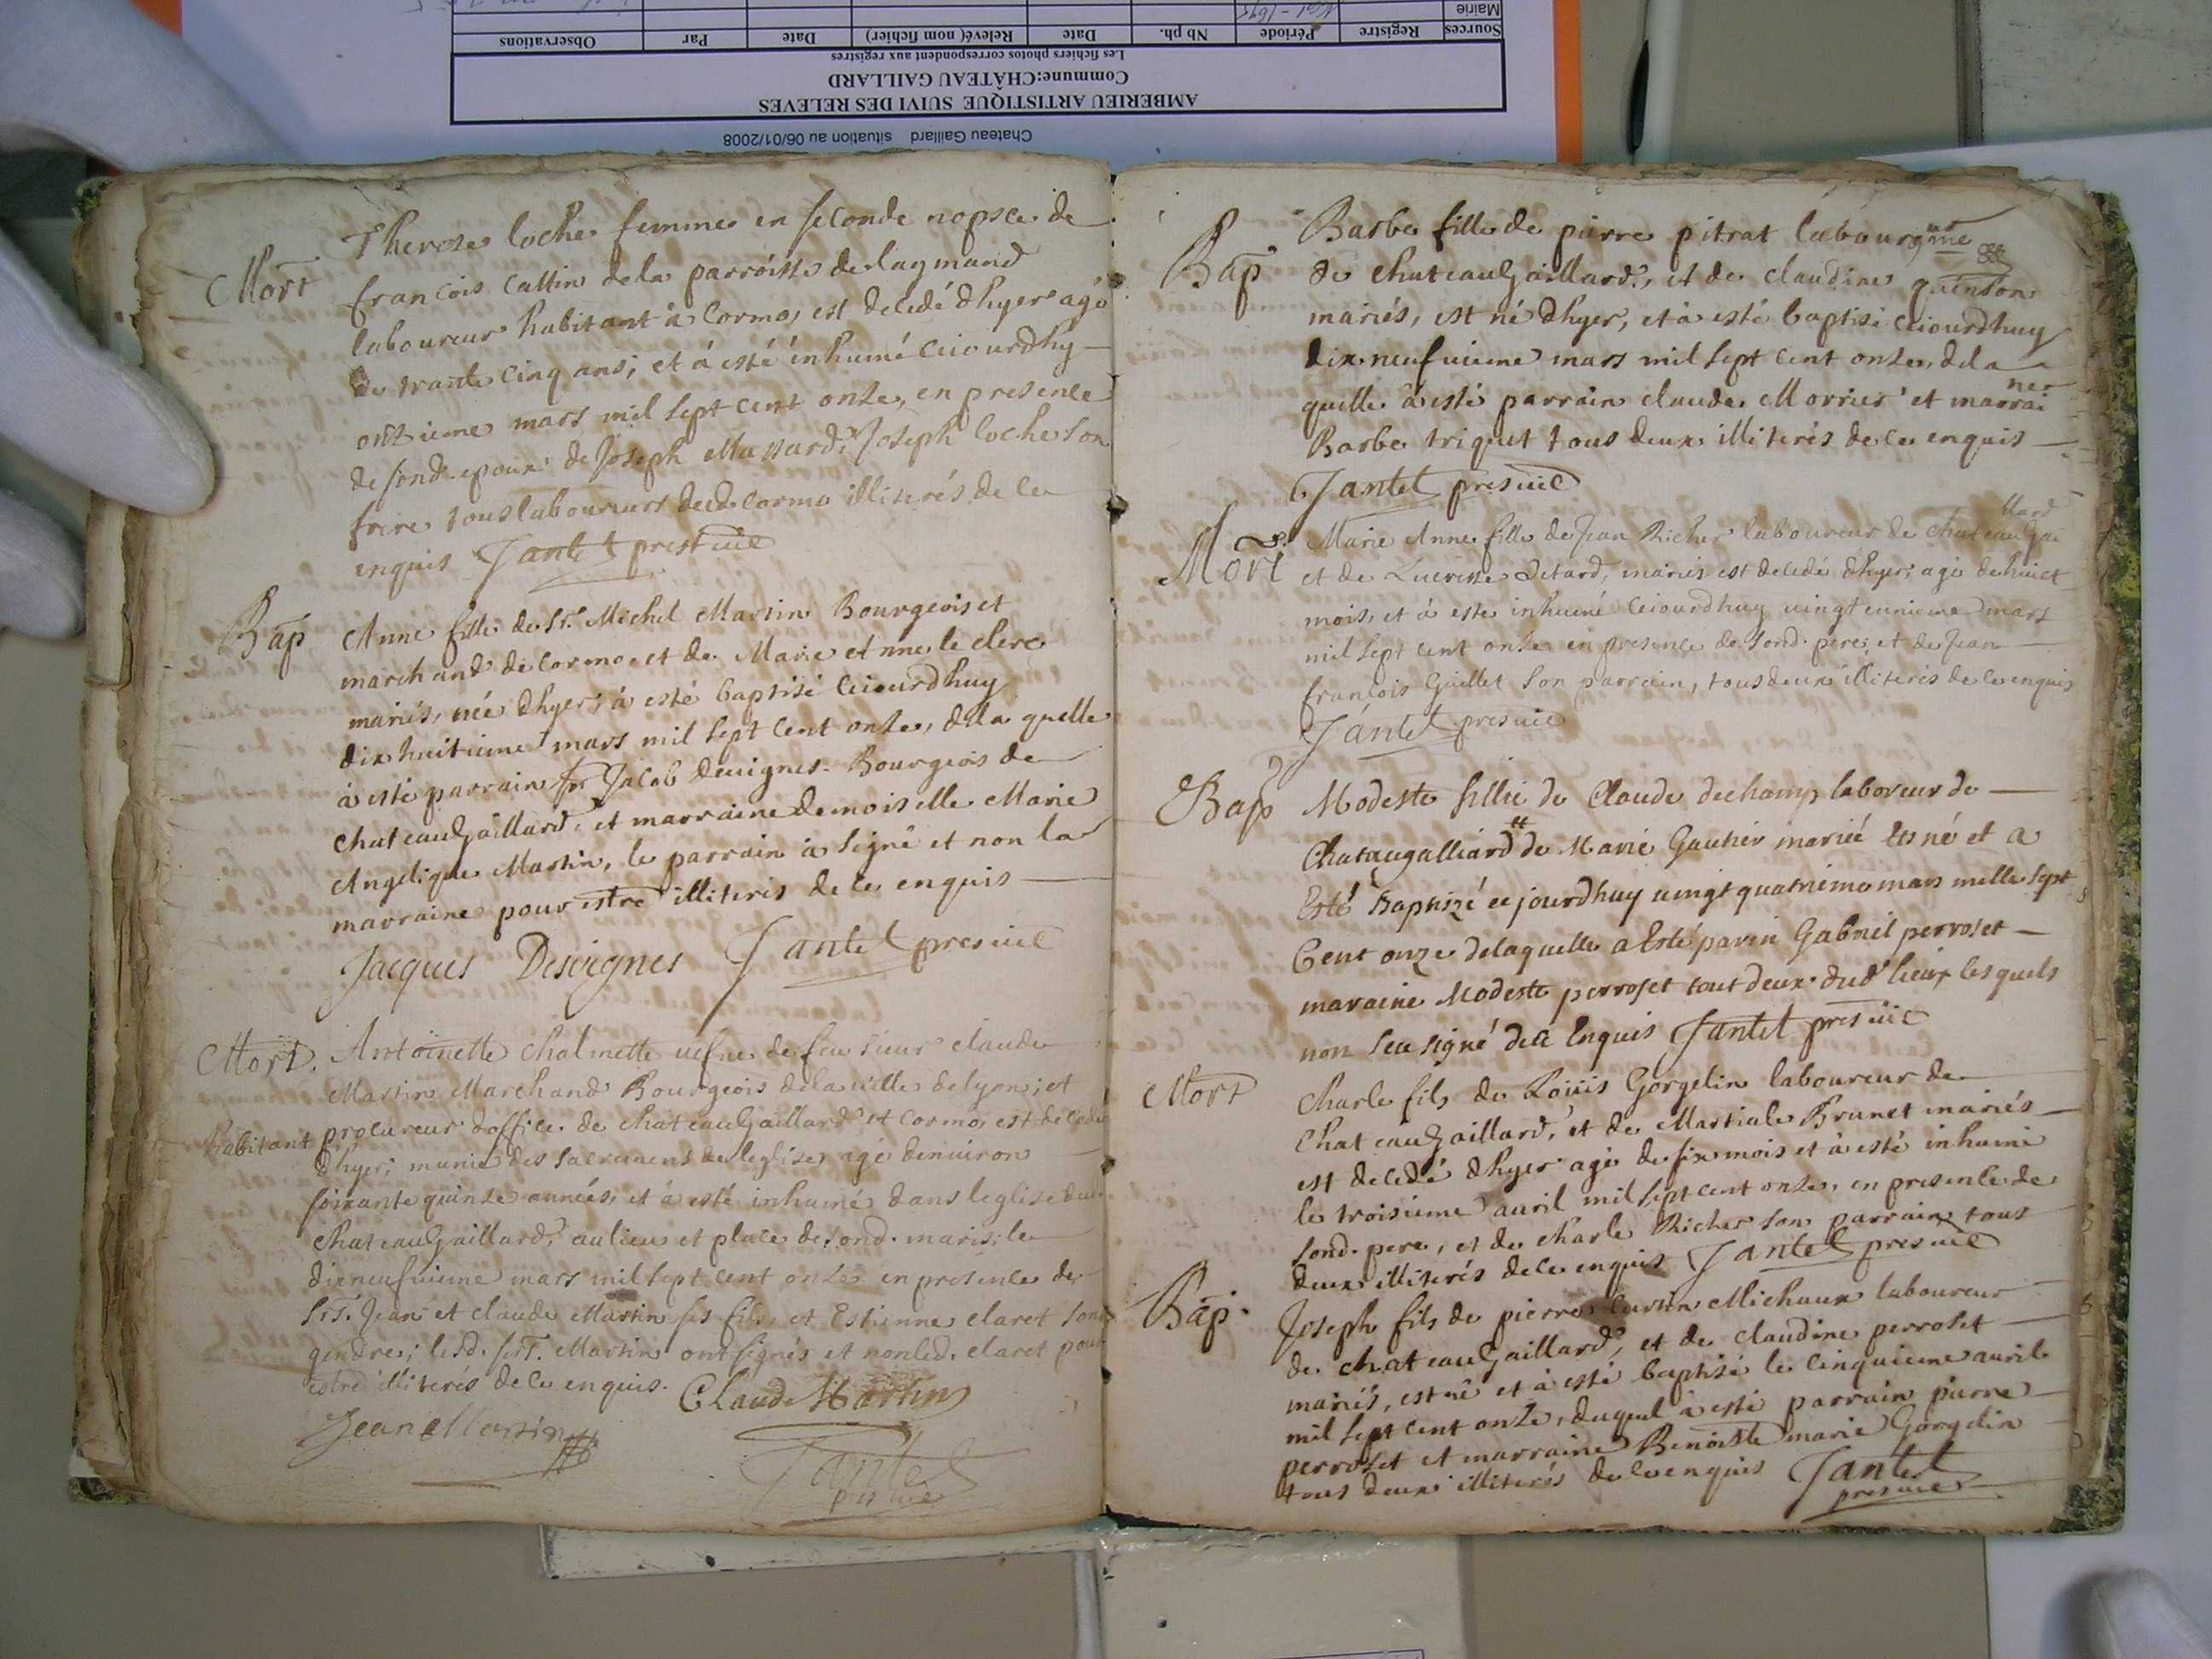 Chateau Gaillard situation au 06/01/2008
AMBERIEU ARTISTIQUE SUIVI DES RELEVES
Commune:CHÂTEAU GAILLARD
Les fichiers photos correspondent aux registres
Sources Registre Période Nb ph. Date Relevé( nom fichier) Date Par Observations
Mairie
Mort
Therese loche femme en seconde nopsce de
francois Callin de la parroisse de lagmand
laboureur habitant à Cormo, est decedé dhyer agé
de trante cinq ans, et à esté inhumé ceiourdhy
onzieme mars mil sept cent onze, en presence
de sond. epoux de Joseph Massard, Joseph loche son
frere tous laboureurs dud. Cormo illiterés de ce
enquis Jantet prest vic
Bap
Anne fille de Sr. Michel Martin Bourgeois et
marchand de cormo, et de Marie Anne le clerc
mariés, née dhyer, à esté baptisé ceiourdhuy
dix huitieme mars mil sept cent onze, dela quelle
à esté parrain sr Jacob devignes Bourgeois de
chateaugaillard, et marraine demoiselle Marie
Angelique Martin, le parrain à signé et non la
marraine pour estre illiteris de ce enquis
Jacques Desvignes Jantet pres vic
Mort.
Antoinette Chalmette vefve de feu sieur claude
Martin Marchand Bourgeois dela ville de lyon, et
habitant procureur doffice de chateaugaillard et cormo, est decedé
dhyer, munie des sacremens de leglise, agé denviron
soixante quinze années, et à esté inhumé dans leglise dud.
chateaugaillard, au lieu et place de sond. maris, le
dixneufvieme mars mil sept cent onze en presence de
srs. Jean et claude Martin ses fils, et Estienne claret sond.
gendre; lesd. srs. Martin ont signés et non led. claret pour
estre illiterés de ce enquis. Claude Martin
Jean Martin
Jantet
pres vic
Bap
Barbe fille de pierre pitrat laboureur
de chateaugaillard, et de claudine quinson
mariés, est né dhyer, et à esté baptisé ceiourdhuy
dix neufvieme mars mil sept cent onze, dela
quelle à esté parrain claude Morrier et marraine
Barbe triquet tous deux illiterés de ce enquis
Jantet pres vic
Mort
Marie Anne fille de Jean Richer laboureur de chateaugaillard
et de Lucresse Ditard, mariés est decedé dhyer, agé de huict
mois, et à esté inhumé ceiourdhuy vingt unieme mars
mil sept cent onze en presence de sond. pere, et de Jean
francois Guillet son parrain, tous deux illiterés de ce enquis
Jantet pres vic
Bap
Modeste fillie de Claude dechamp laboreur de
Chataugalliard et de Marie Gautier mariéé ets né et a
Esté Baptizé ce jourdhuy vingt quatriéme mars mille sept
Cent onze delaquelle a Esté parin Gabriel perroset
maraine Modeste perroset tout deux dud lieux lesquels
non seu signé dece Enquis Jantet pres vic
Mort
Charle fils de Loüis Gorgelin laboureur de
Chateaugaillard, et de Martiale Brunet mariés
est decedé dhyer agé de six mois et à esté inhumé
le troisieme auril mil sept cent onze, en presence de
sond. pere, et de charle Richer son parrain tous
deux illiterés de ce enquis Jantet pres vic
Bap.
Joseph fils de pierre Michaux laboureur
de chateaugaillard, et de claudine perroset
mariés, est né et à esté baptisé le cinquieme auril
mil sept cent onze, duquel à esté parrain pierre
perroset et marraine Benoiste marie Gorgelin
tous deux illiterés de ce enquis Jantet
pres vic